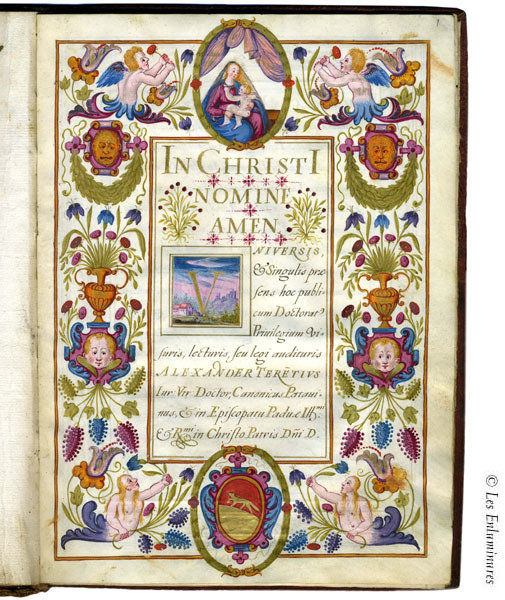 1
IN CHRISTI
NOMINE
AMEN.
VNIVERSIS,
& Singulis præ
sens hoc publi
cum Doctorat9
Privilegium vi-
suris, lecturis, seu legi audituris
ALEXANDER TERĒTIVS
Iur. Vtr. Doctor, Canonicus Patavi-
nus, & in Episcopatu Paduæ Ill.mi
& R.mi in Christo Patris Dñi D.
© Les Enluminures